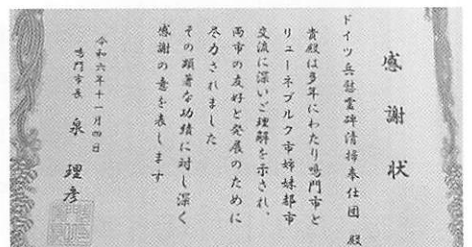 感謝状
ドイツ兵慰霊碑清掃奉仕団 殿
貴殿は多年にわたり鳴門市と
リューネブルク市姉妹都市
交流に深いご理解を示され、
両市の友好と発展のために
尽力されました
その顕著な功績に対し深く
感謝の意を表します
令和六年十一月四日
鳴門市長 泉 理彦